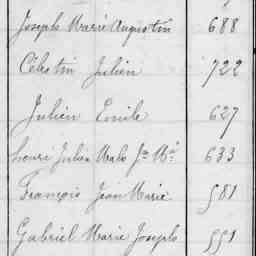 Joseph Marie Augustin 688
Célestin Julien 722
Julien Emile 627
Julien Jn Ma 633
François Jean Marie 581
Gabriel Marie Joseph 551